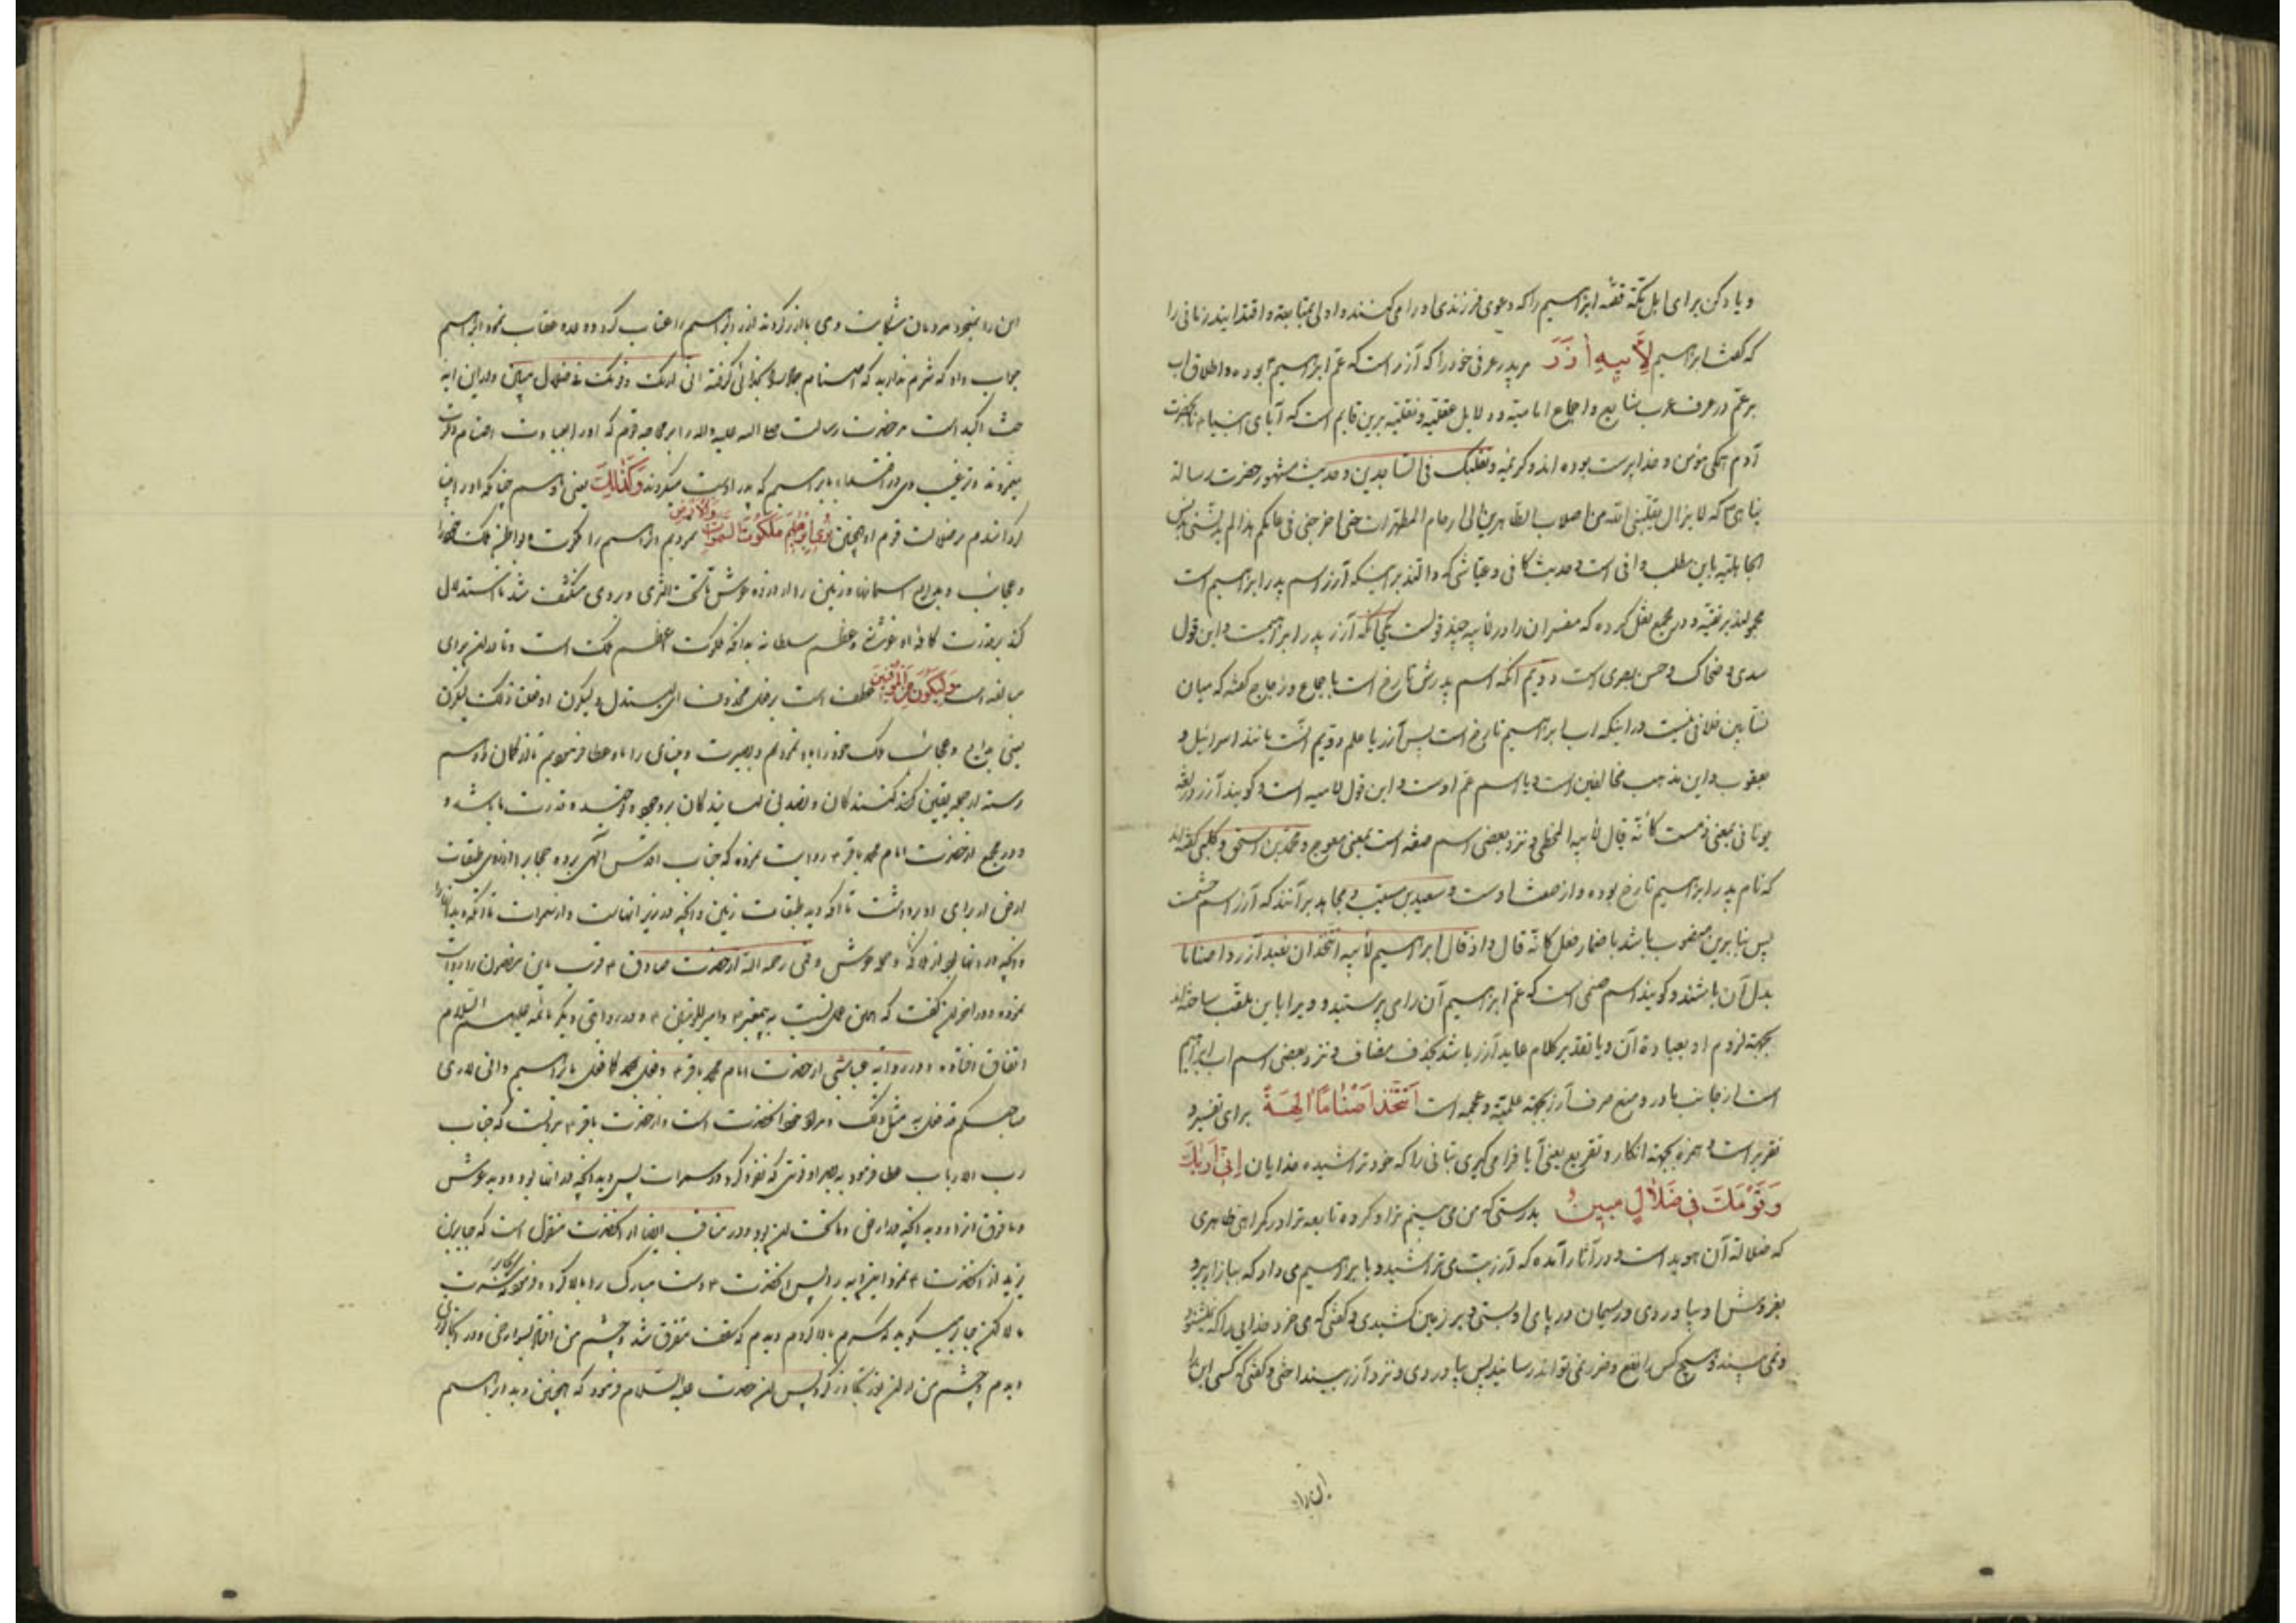 و یاد کن برای اهل مکه قصه ابراهیم را که دعوی فرزندی او را می کنند و اولی بمتابعة و اقتدایند زمانی را
که گفت ابراهیم لِأَبِيهِ أٰزَرَ مر پدر عرفی خود را که آزر است که عم ابراهیم بوده و اطلاق اب
بر عم در عرف عرب شایع و اجماع امامیه و دلایل عقلیه و نقلیه برین قایم است که آبای انبیاء تا حضرت
آدم همگی مؤمن و خداپرست بوده اند و کریمه وتقلبك فی الساجدین و حدیث مشهور حضرت رسالة
پناهی که لا یزال ینقلنی الله من اصلاب الطاهرین الی ارحام المطهرات حتی اخرجنی فی عالمکم هذا لم یدنسنی بدنس
الجاهلیه باین مطلب وافی است و حدیث کافی و عیاشی که دالند بر اینکه آزر اسم پدر ابراهیم است
محمولند بر تقیه و در مجمع نقل کرده که مفسران را در لابیه چند قولست یکی آنکه آزر پدر ابراهیمست و این قول
سدی و ضحاک و حسن بصری است دویم آنکه اسم پدرش تارخ است باجماع و زجاج گفته که میان
نسابین خلافی نیست در اینکه اب ابراهیم تارخ است پس آزر یا علم دویم است مانند اسرائیل و
یعقوب و این مذهب مخالفین است یا اسم عم اوست و این قول امامیه است و گویند آزر در لغة
یونانی بمعنی ذمست کأنه قال لابیه المخطی و نزد بعضی اسم صفه است بمعنی معوج و محمد بن اسحق و کلبی گفته اند
که نام پدر ابراهیم تارخ بوده و آزر صفت اوست و سعید بن مسیب و مجاهد بر آنند که آزر اسم صنمست
پس بنابرین منصوب باشد باضمار فعل کأنه قال و اذ قال ابراهیم لأبیه اتتخذ ان تعبد آزر و اصناما
بدل آن باشند و گویند اسم صنمی است که عم ابراهیم آن را می پرستید و ویرا باین ملقب ساخته اند
بجهة لزوم او بعبادة آن و یا تقدیر کلام عابد آزر باشد بحذف مضاف و نزد بعضی اسم اب ابراهیم
است از جانب مادر و منع صرف آزر بجهة علمیة و عجمه است أَتَتَّخِذُ أَصْنٰامًا اٰلِهَةً برای تفسیر و
تقریر است و همزه بجهة انکار و تقریع یعنی آیا فرا می گیری بتانی را که خود تراشیده خدایان إِنِّي أَرٰيكَ
وَقَوْمَكَ فِي ضَلاٰلٍ مُبِينٍ بدرستی که من می بینم ترا و گروه تابعه ترا در گمراهی ظاهری
که ضلالة آن هویداست و در آثار آمده که آزر بت می تراشید و بابراهیم می داد که ببازار ببرد
بفروش او بیاوردی و ریسمان در پای او بستی و بر زمین کشیدی و گفتی که می خرد خدایی را که نمیشنود
و نمی بیند و هیچ کس را نفع و ضرر نمی تواند رسانید پس بیاوردی و نزد آزر بینداختی و گفتی که کسی این را
این را
این را نخرید مردمان شکایت وی بآزر کردند آزر ابراهیم را عتاب کرد و وعده عقاب نمود ابراهیم
جواب داد که شرم ندارید که اصنام را بخدائی گرفته انی اریك وقومك فی ضلال مبین و این آیه
حث اکید است مر حضرت رسالت صلی الله علیه واله را بر محاجه قوم که او را بعبادت اصنام دعوت
مینمودند و ترغیب وی در اقتداء بابراهیم که پدر اوست میکردند وَكَذٰلِكَ یعنی و چنانکه او را بینا
گردانیدم بر ضلالت قوم او همچنین نُرِي إِبْرٰهِيمَ مَلَكُوتَ السَّمٰوٰتِ وَالْأَرْضِ نمودیم ابراهیم را ملکوت و بواطن ملک خود را
و عجایب و بدایع اسمانها و زمین را از ذروه عرش تا تحت الثری بر وی منکشف شد تا استدلال
کند بر قدرت کافه او عز شأنه و عظم سلطانه بدانکه ملکوت اعظم ملک است و تا در آن برای
مبالغه است وَلِيَكُونَ مِنَ الْمُوقِنِينَ عطف است بر فعل محذوف ای لیستدل ولیکون او فعلنا ذلك لیکون
یعنی بدایع و عجایب ملک خود را باو نمودم و بصیرت و بینائی را باو عطا فرمودیم تا از گمان و وسم
رسته از جمله یقین کنندگان و تصدیق نمایندگان بر وجود و قدرت ما باشد و
و در مجمع از حضرت امام محمد باقر ع روایت نموده که جناب اقدس الهی پرده حجاب را از روی طبقات
ارض از برای او برداشت تا آنکه دید طبقات زمین و آنچه در زیر آنهاست و از سمرات تا آنکه دید آنها را
و آنچه در آنها بود از ملائکه و حمله عرش و قمی رحمه الله از حضرت صادق ع قریب باین مضمون را روایت
نموده و در آخر آن گفت که همین عمل نسبت به پیغمبر ص و امیرالمؤمنین ع و در روایتی دیگر بائمه علیهم السلام
اتفاق افتاده و در روایه عیاشی از حضرت امام محمد باقر ع وفعل بمحمد کما فعل بابراهیم وانی لاری
صاحبکم قد فعل به مثل ذلك و مراد خود آنحضرت است و از حضرت باقر ع مرویست که جناب
رب الارباب عطا فرمود به بصر او قوتی که نفوذ کرد در سموات پس دید آنچه در آنها بود و دید عرش
و ما فوق آن را و دید آنچه در ارض و ما تحت آن بود و در مناقب ایضا از آنحضرت منقول است که جابر بن
یزید از آنحضرت ع نمود این آیه را پس آنحضرت ع دست مبارک را بالا کرد و فرمود که سرت را
بالا کن جابر میگوید که سرم بالا کردم دیدم که سقف متفرق شد و چشم من
دیدم و چشم من از آن نور تجاوز کرد پس آن حضرت علیه السلام فرمود که همچنین دید ابراهیم